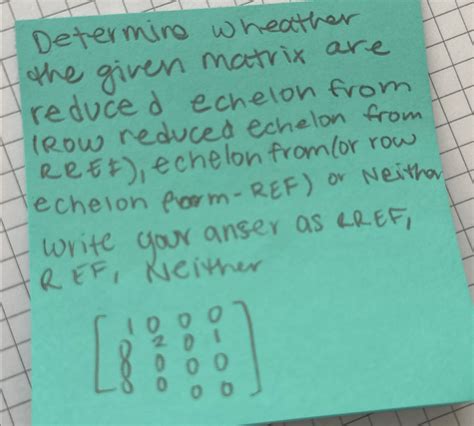 Determine wheather
the given matrix are
reduced echelon from
(Row reduced echelon from
RREF), echelon from (or row
echelon form-REF) or Neither
write your anser as RREF,
REF, Neither
1 0 0 0
0 2 0 1
0 0 0 0
0 0 0 0